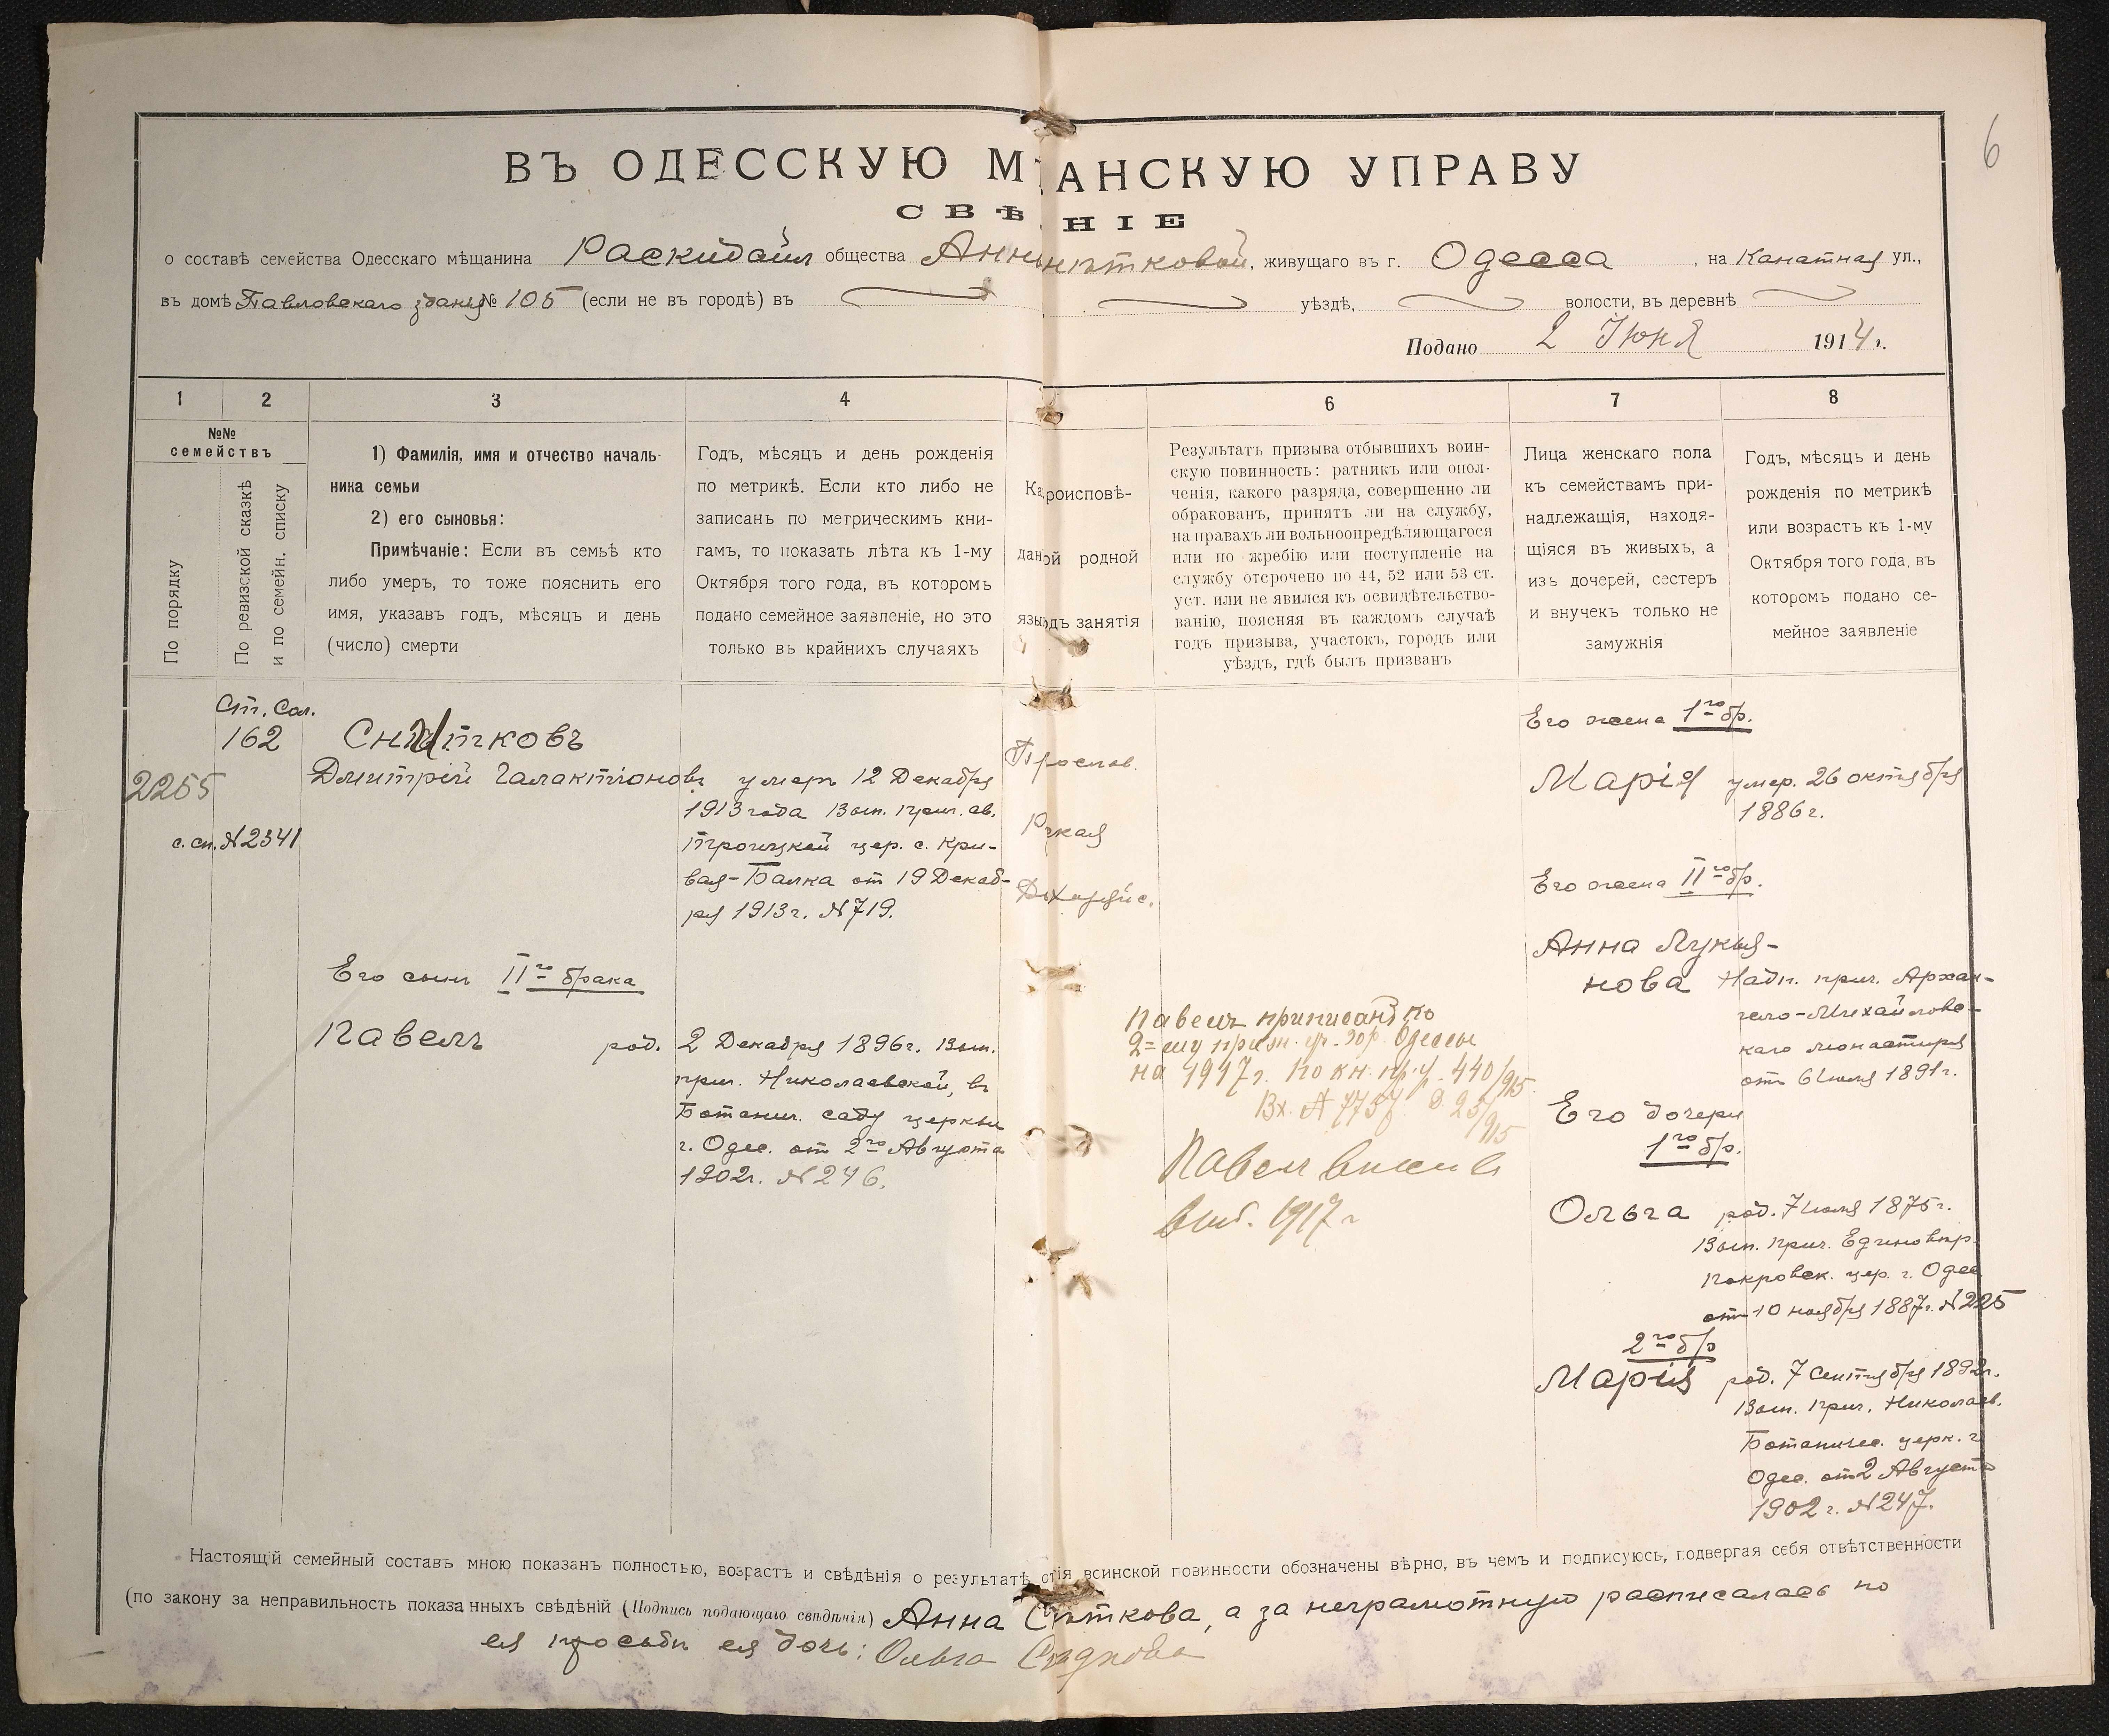 6
ВЪ ОДЕССКУЮ М АНСКУЮ УПРАВУ
СВѢ НІЕ
о составѣ семейства Одесскаго мѣщанина Раскидайл общества Анны нѣтковой, живущаго въ г. Одесса, на Канатная ул.,
въ домѣ Павловскаго зданія № 105 (если не въ городѣ) въ уѣздѣ, волости, въ деревнѣ
Подано 2 Іюня 1914 г.
1 2 3 4 6 7 8
№№ семействъ
По порядку
По ревизской сказкѣ и по семейн. списку
1) Фамилія, имя и отчество началь-
ника семьи
2) его сыновья:
Примѣчаніе: Если въ семьѣ кто
либо умеръ, то тоже пояснить его
имя, указавъ годъ, мѣсяцъ и день
(число) смерти
Годъ, мѣсяцъ и день рожденія
по метрикѣ. Если кто либо не
записанъ по метрическимъ кни-
гамъ, то показать лѣта къ 1-му
Октября того года, въ которомъ
подано семейное заявленіе, но это
только въ крайнихъ случаяхъ
Ка роисповѣ-
дан ой родной
язы одъ занятія
Результатъ призыва отбывшихъ воин-
скую повинность: ратникъ или опол-
ченія, какого разряда, совершенно ли
обракованъ, принятъ ли на службу,
на правахъ ли вольноопредѣляющагося
или по жребію или поступленіе на
службу отсрочено по 44, 52 или 53 ст.
уст. или не явился къ освидѣтельство-
ванію, поясняя въ каждомъ случаѣ
годъ призыва, участокъ, городъ или
уѣздъ, гдѣ былъ призванъ
Лица женскаго пола
къ семействамъ при-
надлежащія, находя-
щіяся въ живыхъ, а
изъ дочерей, сестеръ
и внучекъ только не
замужнія
Годъ, мѣсяцъ и день
рожденія по метрикѣ
или возрастъ къ 1-му
Октября того года, въ
которомъ подано се-
мейное заявленіе
Ст. Сол.
162
2255
с. сп. №2341
Снѣтковъ
Дмитрій Галактіоновъ умеръ 12 Декабря
1913 года Вып. прич. св.
Троицкой цер. с. Кри-
вая-Балка от 19 Декаб-
ря 1913 г. №719.
Его сынъ IIго брака
Павелъ род. 2 Декабря 1896 г. Вып.
прич. Николаевской, въ
Ботанич. саду церкви
г. Одес. от 2го Августа
1902 г. №246.
Прослав.
Р кая
Павелъ приписанъ ко
2=му приз. уч. гор. Одессы
на 1917 г. по кн. пр. у. 440/915
Павелъ
1917 г
Его жена 1го бр.
Марія умер. 26 октября
1886 г.
Его жена IIго бр.
Анна Лукья-
нова Надп. прич. Архан-
гело-Михайловс-
каго монастыря
отъ 6 Іюля 1891 г.
Его дочери
1го бр.
Ольга род. 7 Іюля 1875 г.
Вып. прич. Единовѣр.
Покровск. цер. г. Одес
отъ 10 ноября 1887 г. №225
2го бр
Марія род. 7 Сентября 1892 г.
Вып. прич. Николаев.
Ботаничес. церк. г.
Одес. от 2 Августа
1902 г. №247.
Настоящій семейный составъ мною показанъ полностью, возрастъ и свѣдѣнія о результатѣ от ія воинской повинности обозначены вѣрно, въ чемъ и подписуюсь, подвергая себя отвѣтственности
(по закону за неправильность показанныхъ свѣдѣній (Подпись подающаго свѣдѣнія) Анна С ѣткова, а за неграмотную расписалась по
ея просьбѣ ея дочь: Ольга